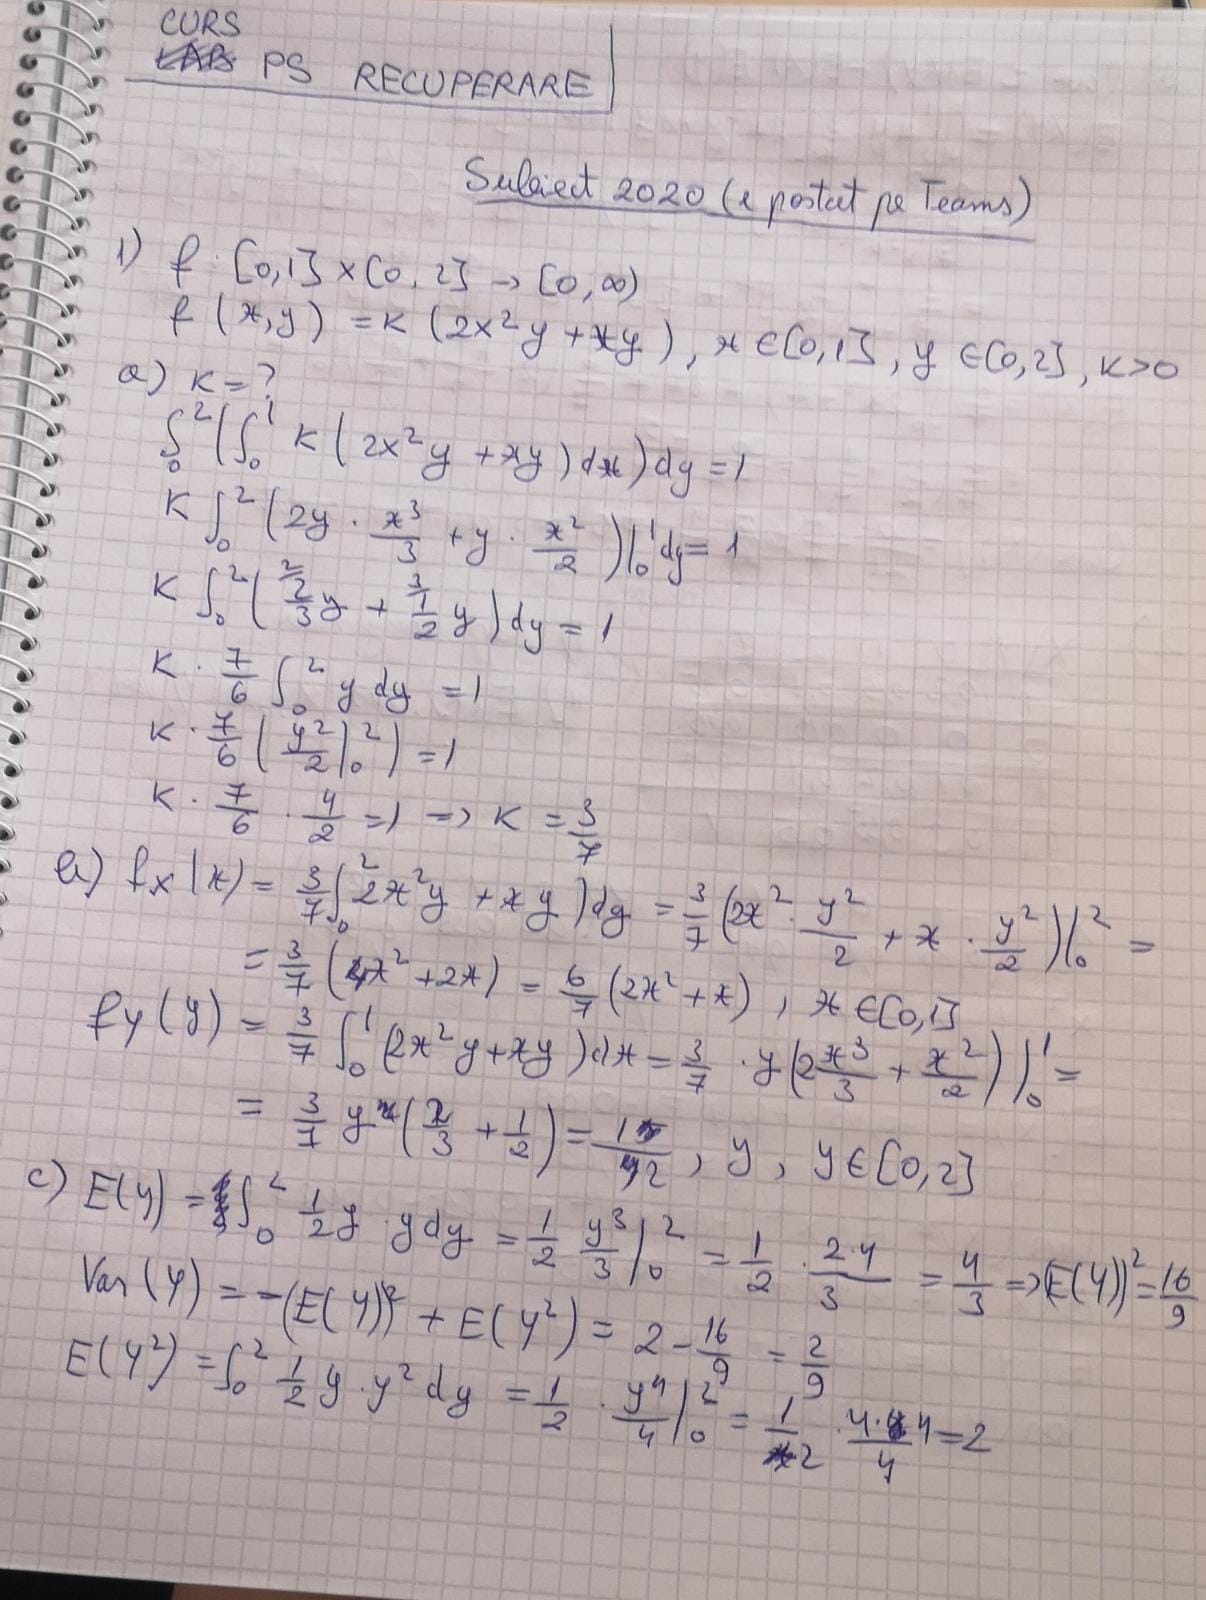 CURS
PS RECUPERARE
Subiect 2020 (e postat pe Teams)
1) f : [0,1] × [0,2] → [0,∞)
f(x,y) = K(2x²y + xy), x ∈ [0,1], y ∈ [0,2], K>0
a) K = ?
∫₀² (∫₀¹ K(2x²y + xy) dx) dy = 1
K ∫₀² (2y · x³/3 + y · x²/2) |₀¹ dy = 1
K ∫₀² (²⁾2/3 y + ³⁾1/2 y) dy = 1
K · 7/6 ∫₀² y dy = 1
K · 7/6 (y²/2 |₀²) = 1
K · 7/6 · 4/2 = 1 => K = 3/7
b) fx(x) = 3/7 ∫₀² 2x²y + xy) dy = 3/7 (2x² · y²/2 + x · y²/2) |₀² =
= 3/7 (4x² + 2x) = 6/7 (2x² + x), x ∈ [0,1]
fy(y) = 3/7 ∫₀¹ (2x²y + xy) dx = 3/7 · y (2 x³/3 + x²/2) |₀¹ =
= 3/7 y (2/3 + 1/2) = 1/2, y, y ∈ [0,2]
c) E(Y) = ∫₀² 1/2 y · y dy = 1/2 y³/3 |₀² = 1/2 · 2·4/3 = 4/3 => (E(Y))² = 16/9
Var(Y) = -(E(Y))² + E(Y²) = 2 - 16/9 = 2/9
E(Y²) = ∫₀² 1/2 y · y² dy = 1/2 · y⁴/4 |₀² = 1/2 · 4·4/4 = 2